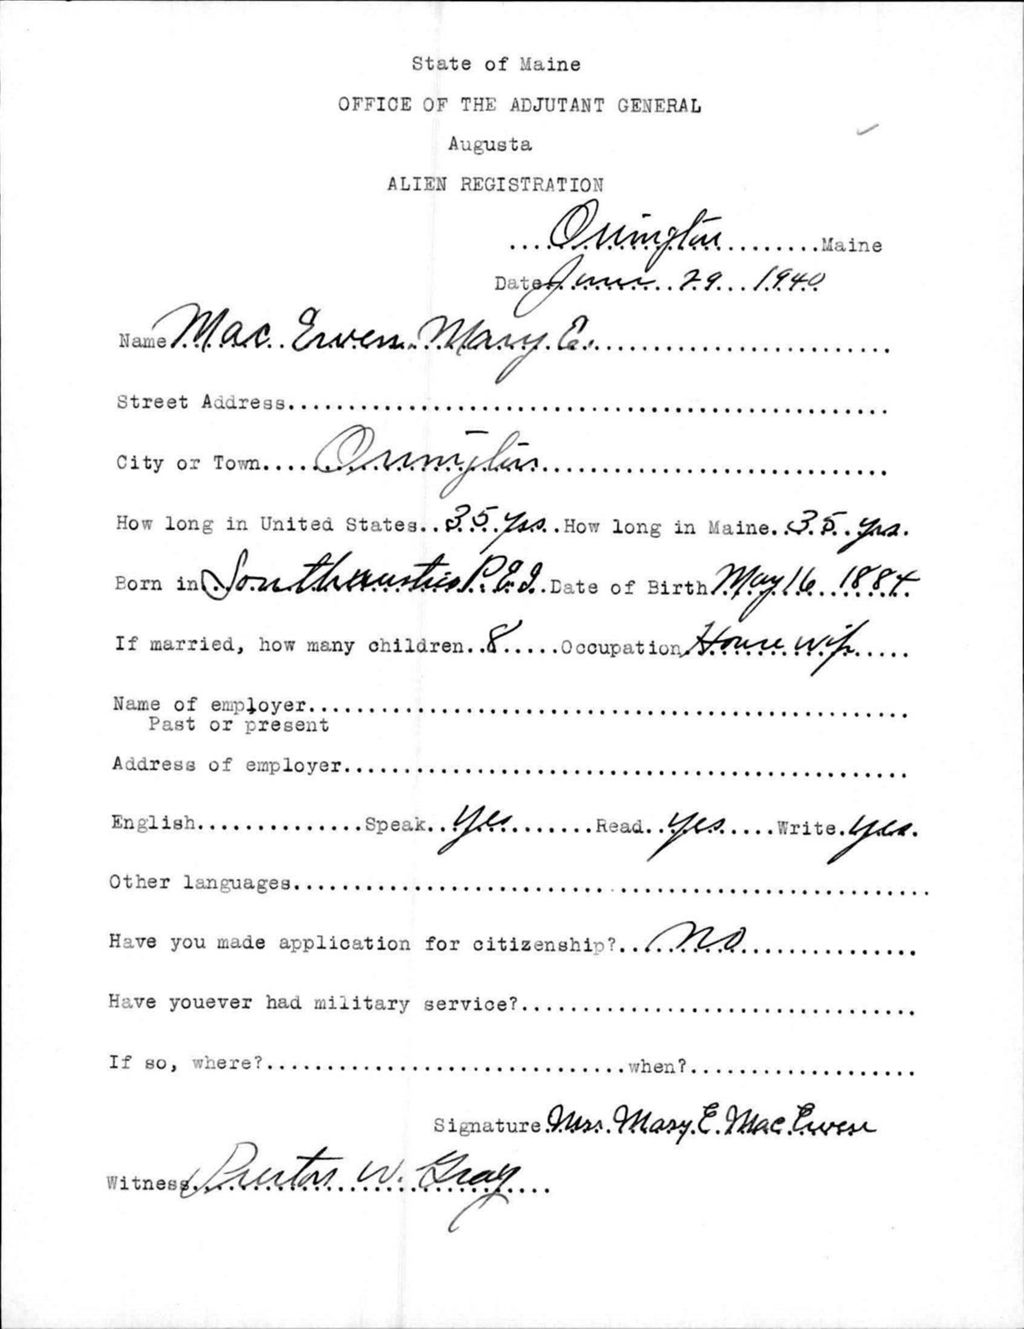 State of Maine
OFFICE OF THE ADJUTANT GENERAL
Augusta
ALIEN REGISTRATION
....Orrington.........Maine
Date June 29 1940
Name Mac Ewen Mary E.
Street Address
City or Town Orrington
How long in United States..35 yrs..How long in Maine..35 yrs.
Born in P.E.I. Date of Birth May 16 1884
If married, how many children..8.....Occupation House wife
Name of employer
Past or present
Address of employer
English..............Speak..Yes.......Read..yes.....Write.yes.
Other languages
Have you made application for citizenship?...No
Have youever had military service?
If so, where?.............................when?
Signature Mrs. Mary E. Mac Ewen
Witness Preston W. Gray